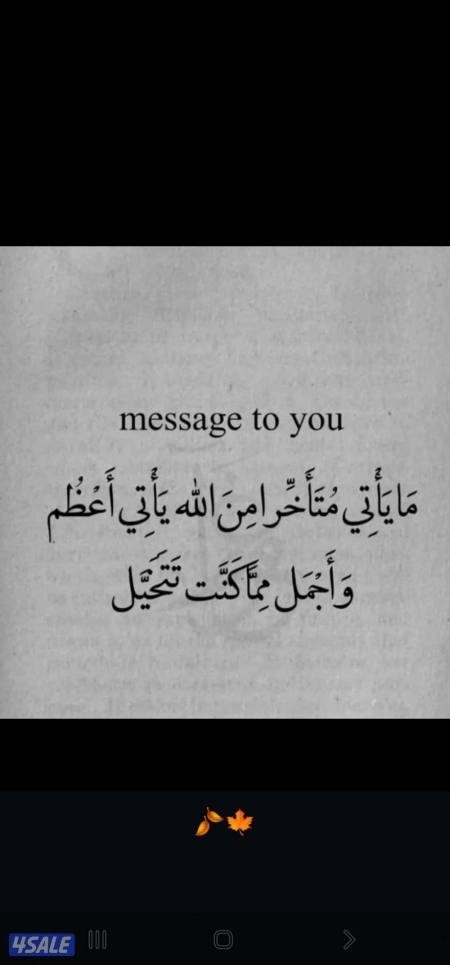 message to you
مَا يَأْتِي مُتَأَخِّرا مِنَ الله يَأْتِي أَعْظُم
وَأَجْمَل مِمَّا كَنَّت تَتَخَيَّل
4SALE